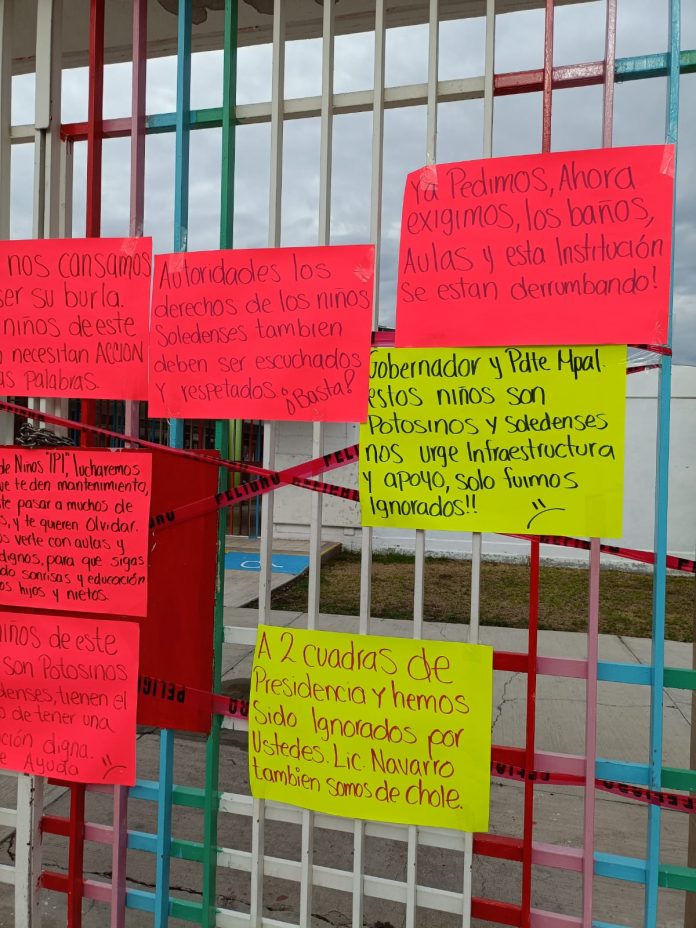 nos cansamos
ser su burla.
niños de este
necesitan ACCION
as palabras.
Autoridades los
derechos de los niños
Soledenses tambien
deben ser escuchados
y respetados. ¡Basta!
Ya Pedimos, Ahora
exigimos, los baños,
Aulas y esta Institución
se estan derrumbando!
Gobernador y Pdte Mpal.
Estos niños son
Potosinos y Soledenses
nos urge Infraestructura
y apoyo, solo fuimos
Ignorados!!
de Niños "IPI", lucharemos
que te den mantenimiento,
te pasar a muchos de
s, y te quieren Olvidar.
os verte con aulas y
dignos, para que sigas
do sonrisas y educación
os hijos y nietos.
niños de este
son Potosinos
edenses, tienen el
o de tener una
ción digna.
e Ayuda
A 2 cuadras de
Presidencia y hemos
Sido Ignorados por
Ustedes. Lic. Navarro
tambien somos de chole.
PELIGRO
PELIGRO
PELIGRO
PELIGRO